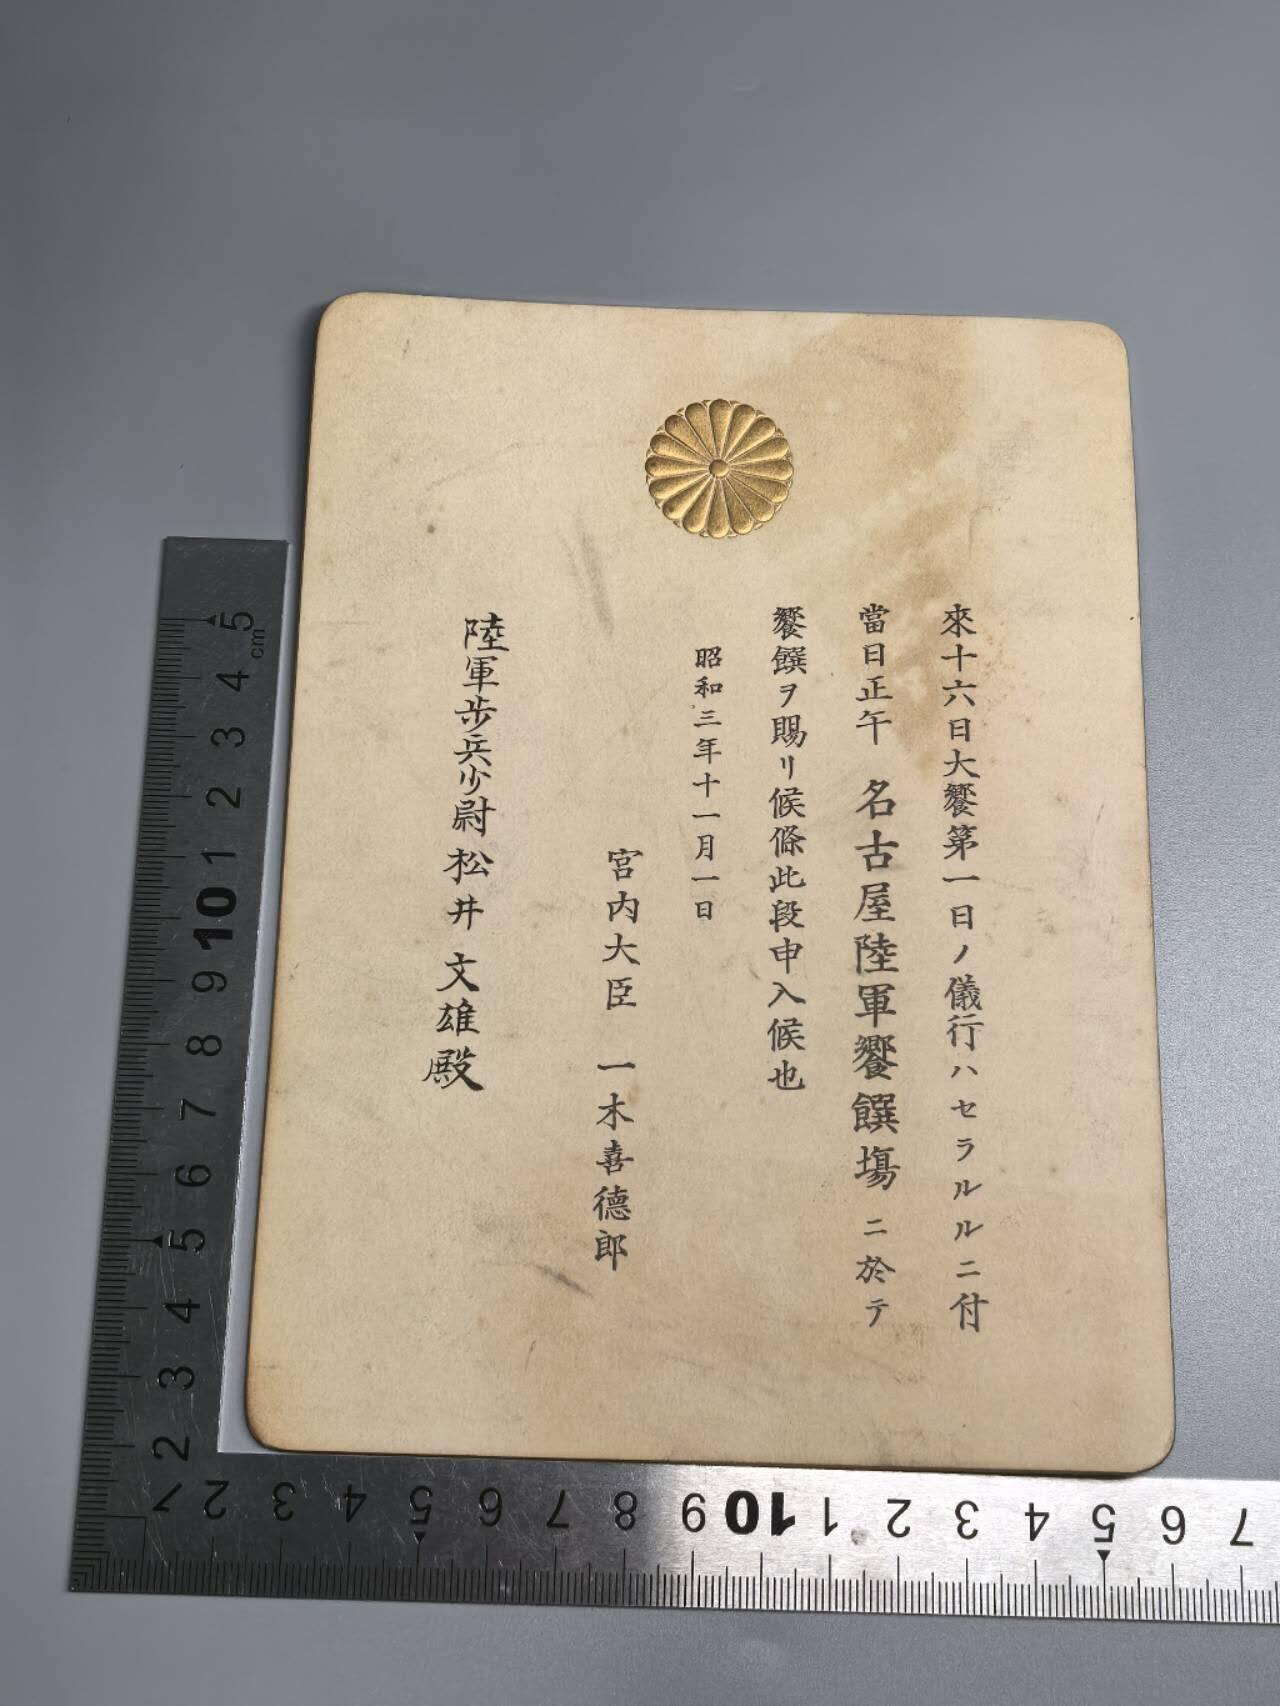 來十六日大饗第一日ノ儀行ハセラルルニ付
當日正午 名古屋陸軍饗饌場ニ於テ
饗饌ヲ賜リ候條此段申入候也
昭和三年十一月一日
宮内大臣 一木喜德郎
陸軍步兵少尉松井文雄殿
5 cm 4 3 2 1 10 9 8 7 6 5 4 3 2
1 2 3 4 5 6 7 8 9 10 1 2 3 4 5 6 7